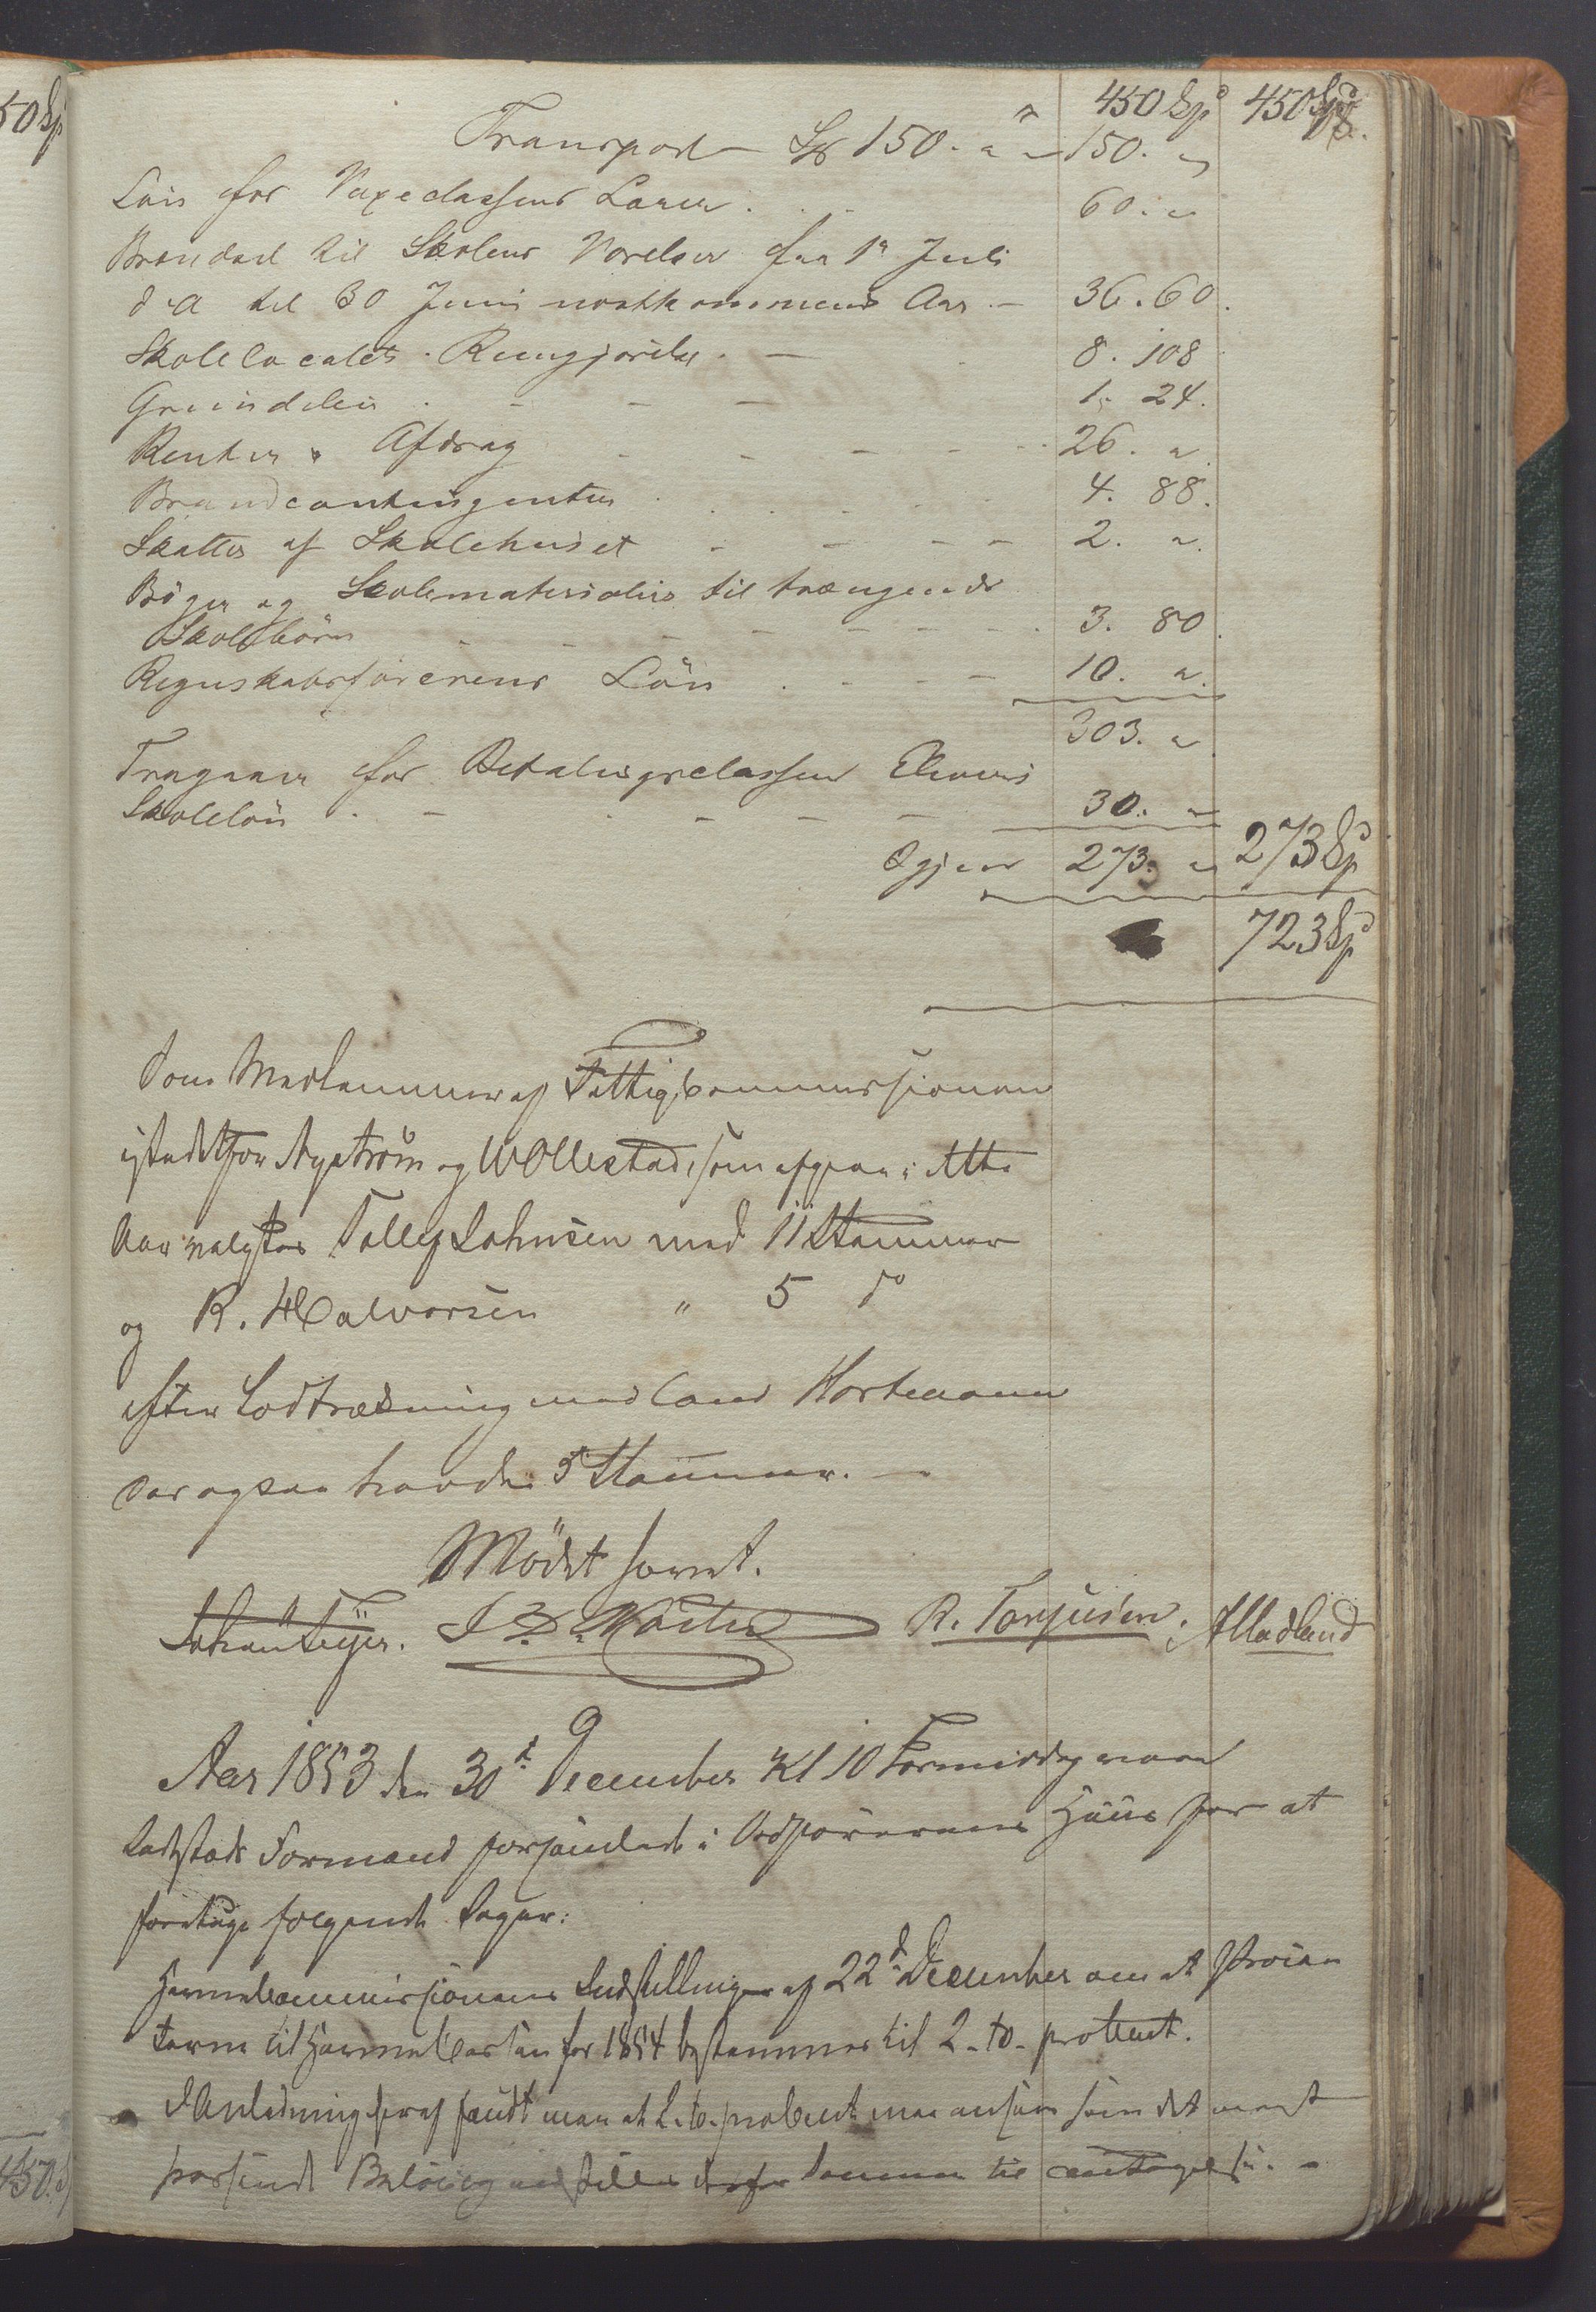 50 Sp
450 Spd 450 Spd.
Transport Sp 150. " " 150. "
Løn for Vaxeclassens Lærer . . 60. "
Brændsel til Skolens Værelser fra 1ste Juli
d. A. til 30 Juni næstkommende Aar. - 36. 60.
Skolelocalets Reengjørelse. - 8. 108
Grundleie . - - - 1. 24.
Renter & Afdrag - - - 26. "
Brandcontingenter . . . . 4. 88.
Skatter af Skolehuset - - - - 2. "
Bøger og Skolematerialier til trængende
Skolebørn - - - - - 3. 80.
Regnskabsførerens Løn . - - - 10. "
303. "
Fragaaer for Betalingsclassens Elevers
Skoleløn . - - - - 30. "
Igjen 273. " 273 Spd
723 Spd
Som Medlemmer af Fattigcommissionen
istedetfor Nyström og W Ollestad, som afgaar i dette
Aar valgtes Tollef Johnsen med 11 Stemmer
og R. Halvorsen " 5 do
efter Lodtrækning med Cand Hortemann
der ogsaa havde 5 Stemmer. -
Mødet hævet.
Johan Feyer. R. Torjusen. A Madland
Aar 1853 den 30te December Kl 10 Formiddag var
Ladstedets Formænd forsamlede i Ordførerens Huus for at
foretage følgende Sager:
Havnekommissionens Indstilling af 22de December om at
til Havnekassen for 1854 bestemmes til 2. to. procent.
I Anledning heraf fandt man at 2. to. procent maa ansees som det mest
passende Beløb og indstilles derfor samme til antagelse. -
450 S